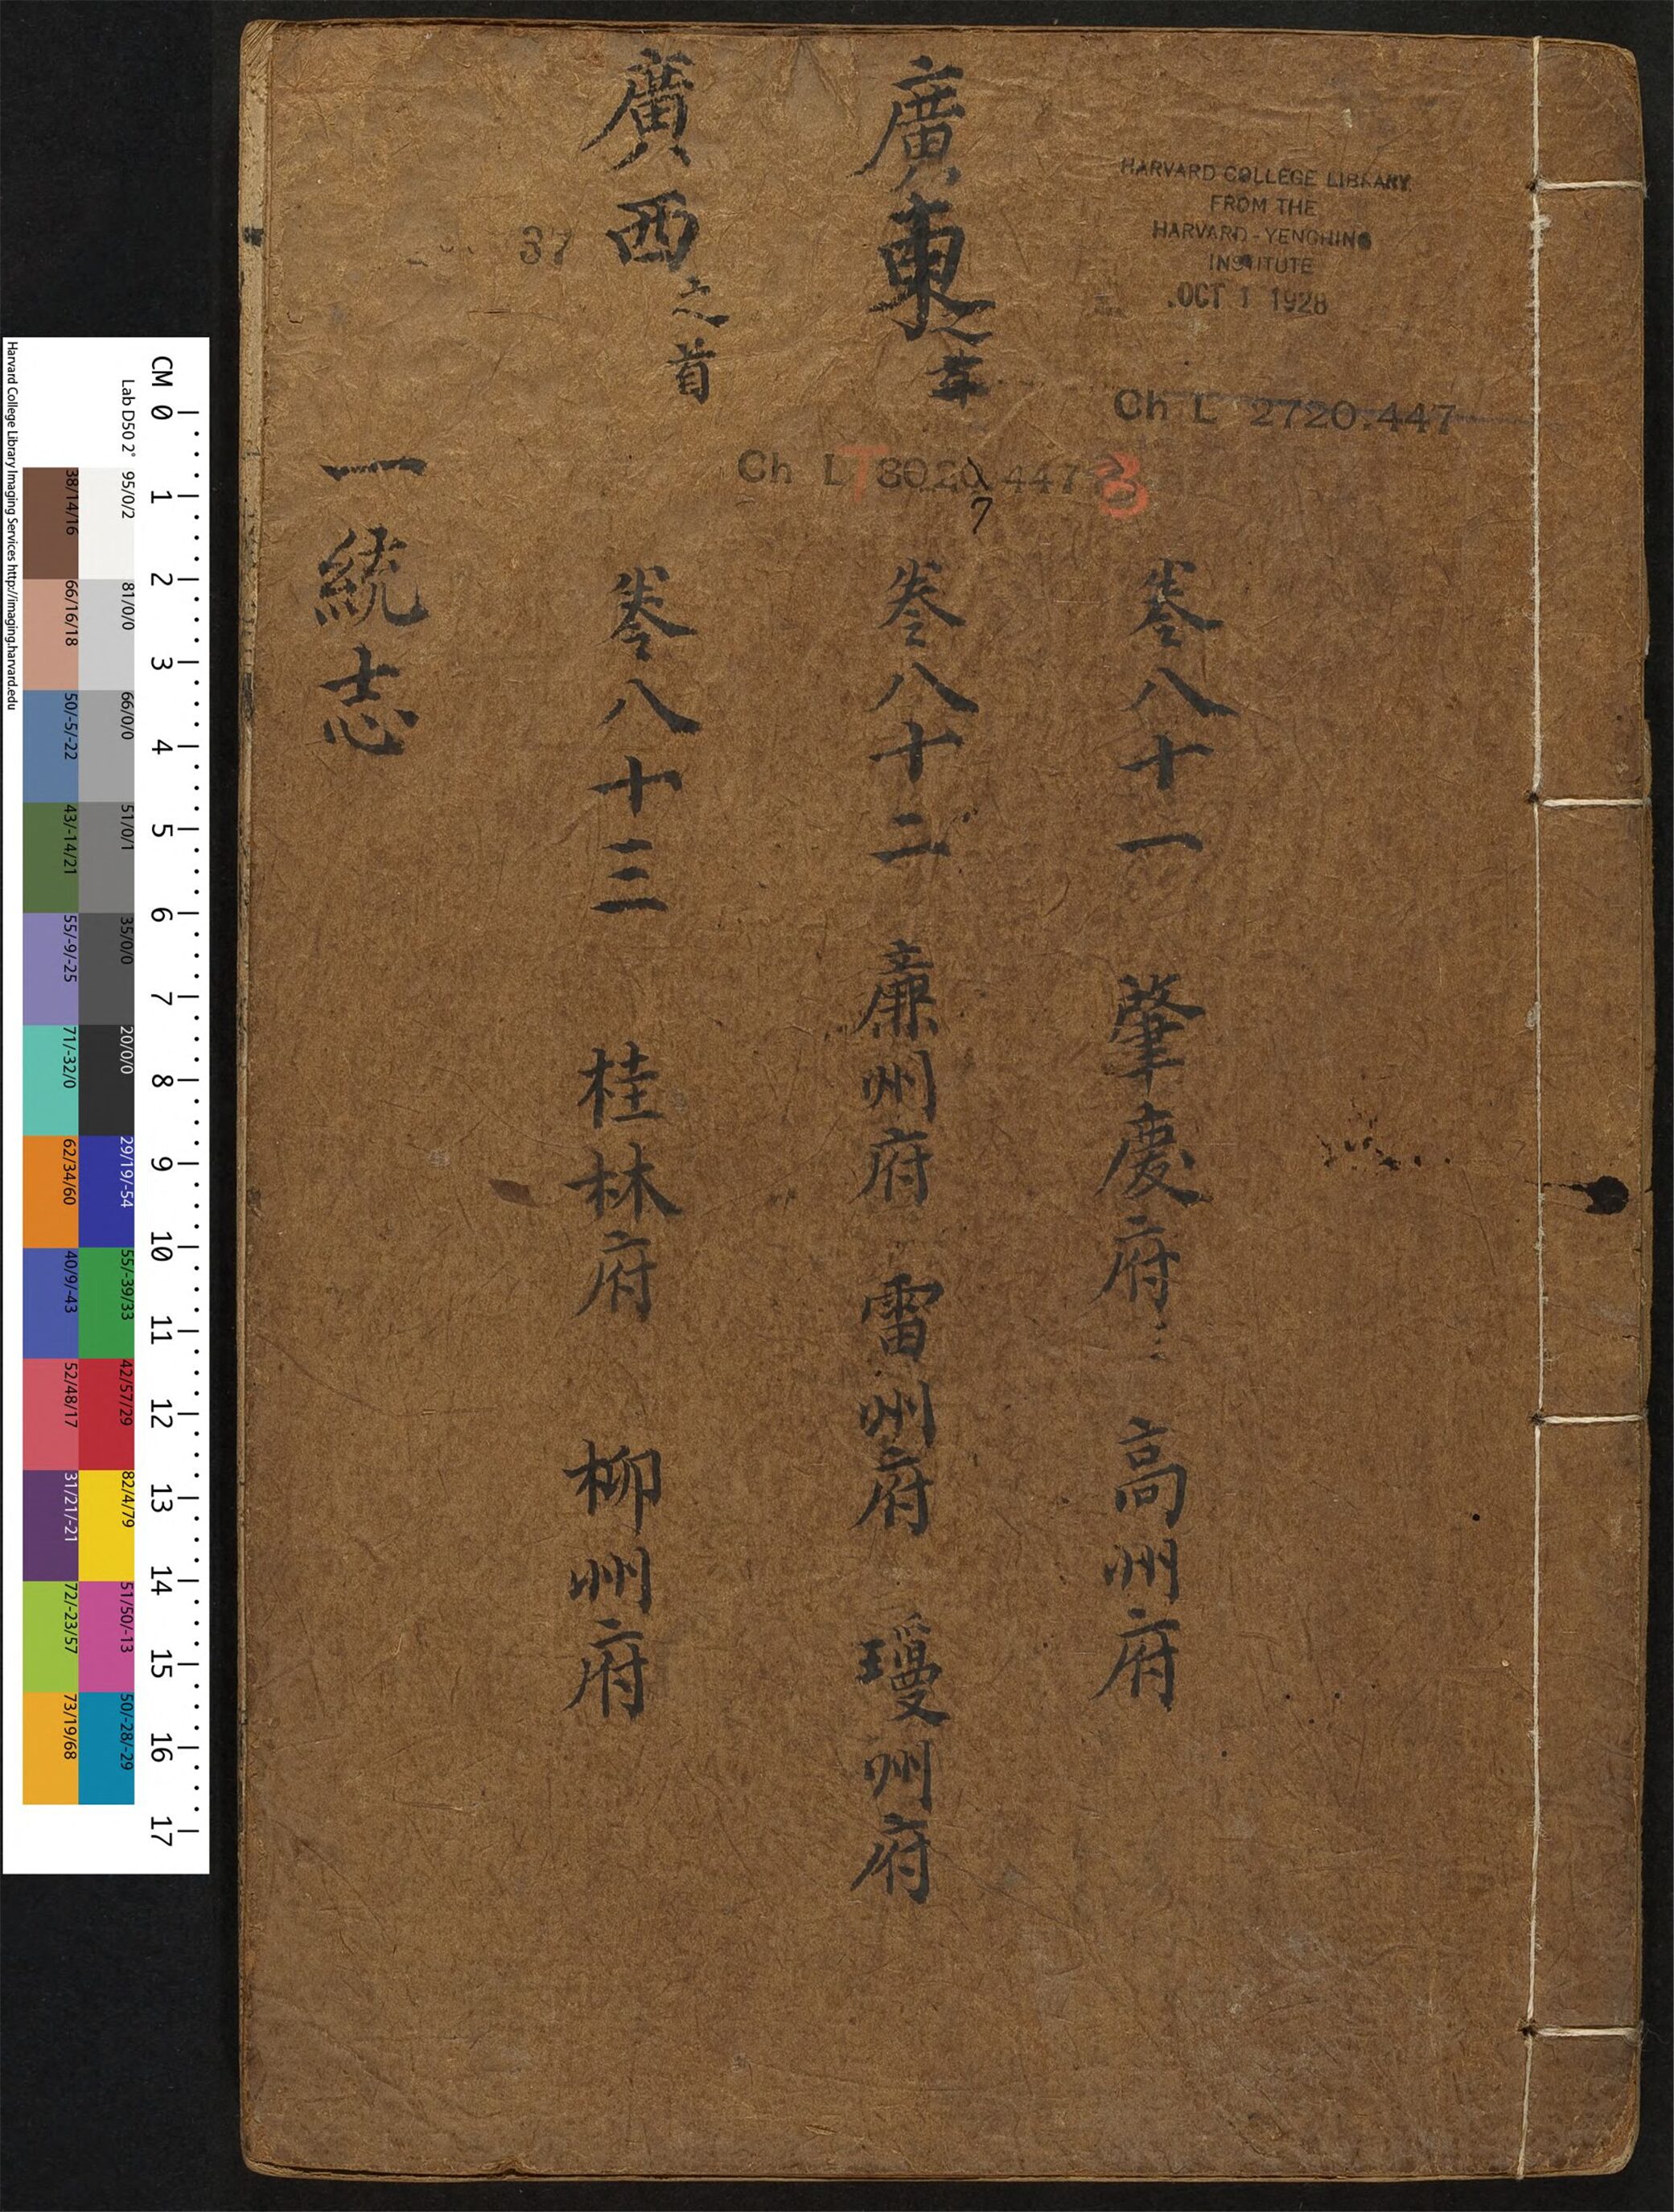 HARVARD COLLEGE LIBRARY
FROM THE
HARVARD-YENCHING
INSTITUTE
OCT 1 1928
Ch L 2720.447
Ch LT 3020 447 3
7
卷八十一 肇慶府 高州府
廣東之
卷八十二 廉州府 雷州府 瓊州府
廣西之首
37
卷八十三 桂林府 柳州府
一統志
CM 0 1 2 3 4 5 6 7 8 9 10 11 12 13 14 15 16 17
Lab D50 2° 95/0/2 81/0/0 66/0/0 51/0/1 35/0/0 20/0/0 29/19/-54 55/-39/33 42/57/29 82/4/79 51/50/-13 50/-28/-29
38/14/16 66/16/18 50/-5/-22 43/-14/21 55/-9/-25 71/-32/0 62/34/60 40/9/-43 52/48/17 31/21/-21 72/-23/57 73/19/68
Harvard College Library Imaging Services http://imaging.harvard.edu